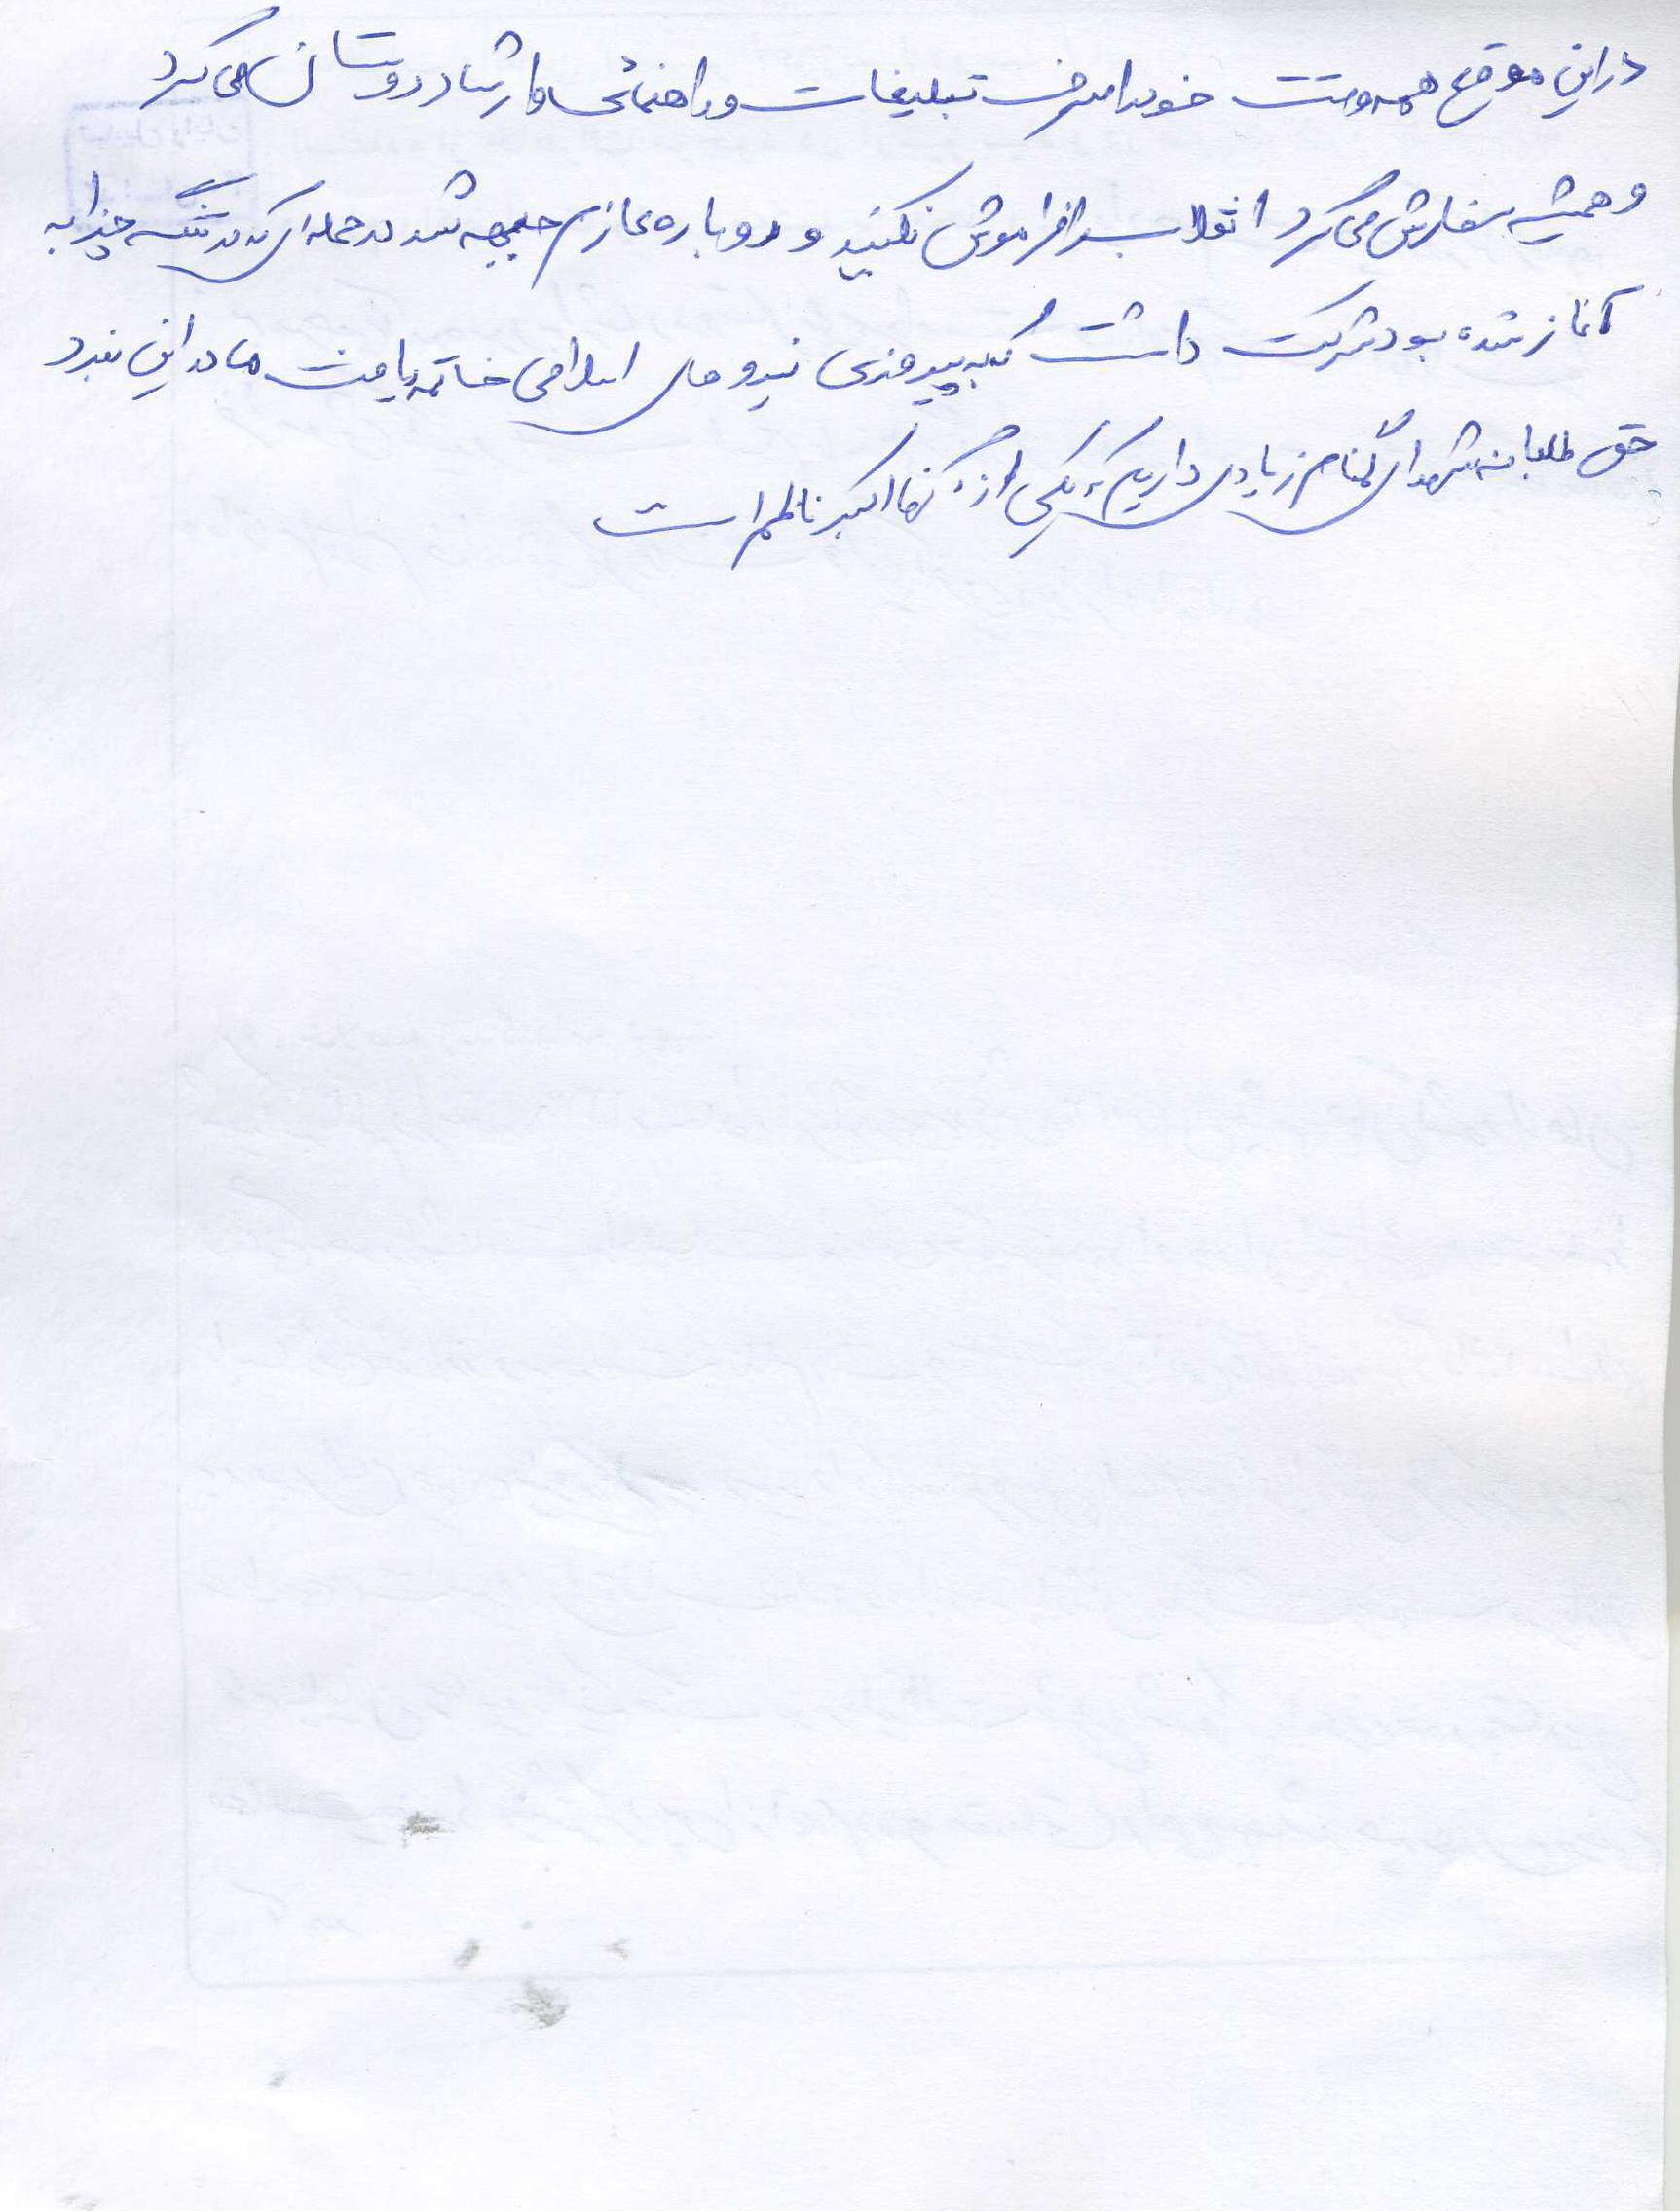 در این موقع همه وقت خود را صرف تبلیغات و راهنمائی و ارشاد دوستان می کرد
و همیشه سفارش می کرد انقلاب را فراموش نکنید و دوباره عازم جبهه شد در حمله ای که در تنگه چزابه
آغاز شده بود شرکت داشت که به پیروزی نیروهای اسلامی خاتمه یافت ما در این نبرد
حق طلبانه شهدای گمنام زیادی داریم که یکی از آنها اکبر ناظم است